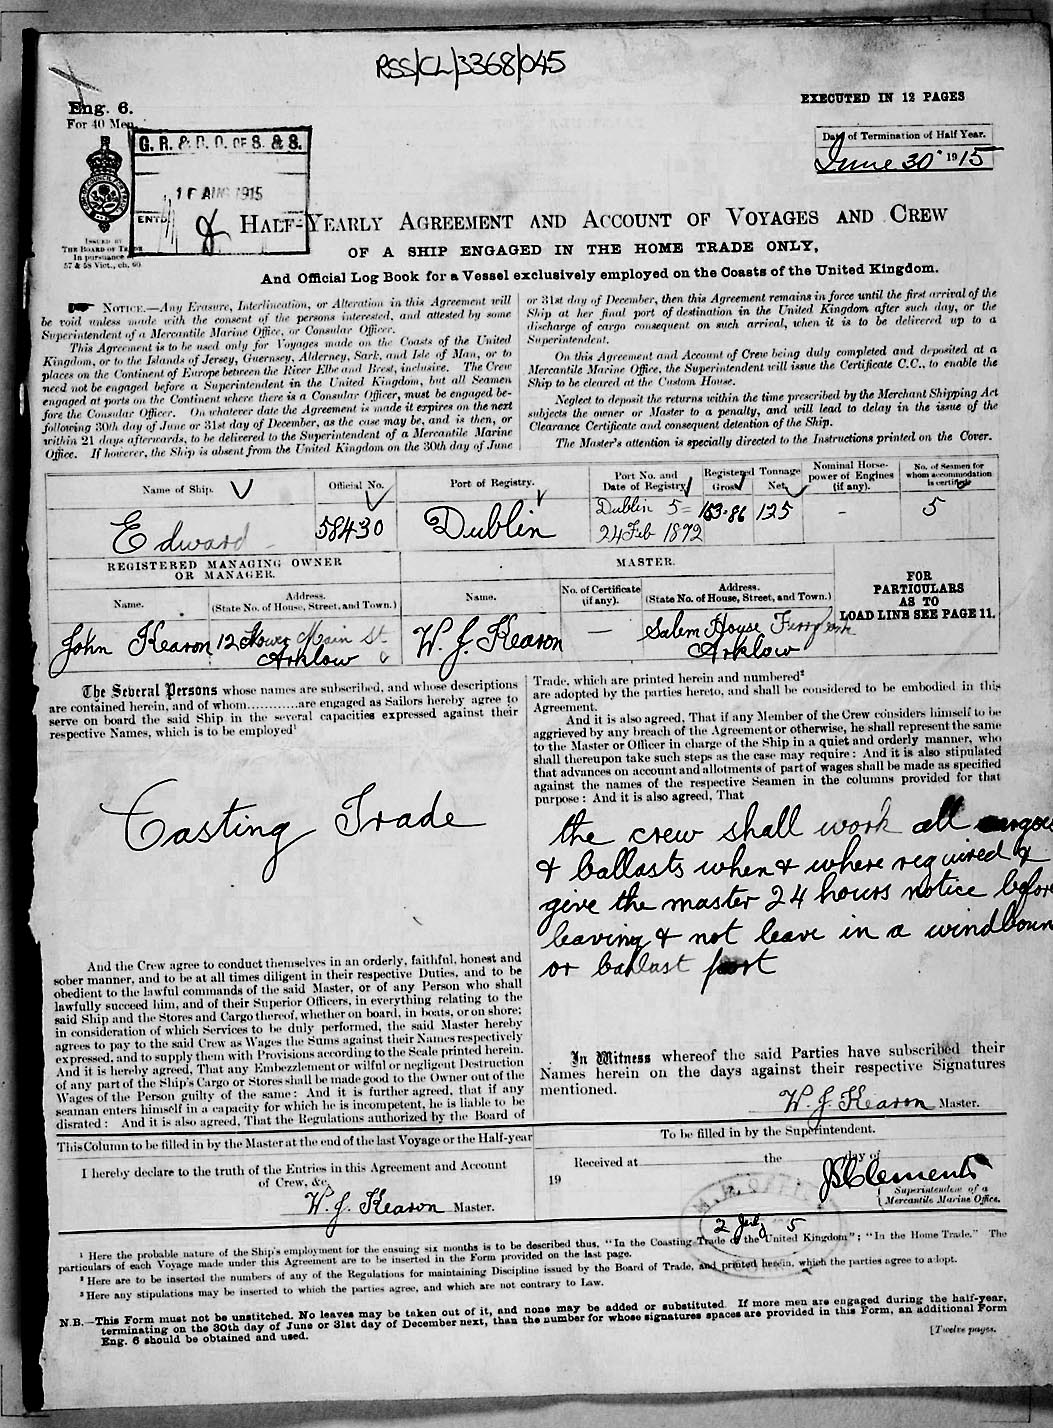 RSS/CL/3368/045
Eng. 6.
For 40 Men.
EXECUTED IN 12 PAGES
Date of Termination of Half Year.
June 30 1915
G. R. & D. O. OF S. & S.
AUG 1915
ENTD
ISSUED BY
THE BOARD OF TRADE
In pursuance
57 & 58 Vict., ch. 60.
HALF-YEARLY AGREEMENT AND ACCOUNT OF VOYAGES AND CREW
OF A SHIP ENGAGED IN THE HOME TRADE ONLY,
And Official Log Book for a Vessel exclusively employed on the Coasts of the United Kingdom.
NOTICE.—Any Erasure, Interlineation, or Alteration in this Agreement will
be void unless made with the consent of the persons interested, and attested by some
Superintendent of a Mercantile Marine Office, or Consular Officer.
This Agreement is to be used only for Voyages made on the Coasts of the United
Kingdom, or to the Islands of Jersey, Guernsey, Alderney, Sark, and Isle of Man, or to
places on the Continent of Europe between the River Elbe and Brest, inclusive. The Crew
need not be engaged before a Superintendent in the United Kingdom, but all Seamen
engaged at ports on the Continent where there is a Consular Officer, must be engaged be-
fore the Consular Officer. On whatever date the Agreement is made it expires on the next
following 30th day of June or 31st day of December, as the case may be, and is then, or
within 21 days afterwards, to be delivered to the Superintendent of a Mercantile Marine
Office. If however, the Ship is absent from the United Kingdom on the 30th day of June
or 31st day of December, then this Agreement remains in force until the first arrival of the
Ship at her final port of destination in the United Kingdom after such day, or the
discharge of cargo consequent on such arrival, when it is to be delivered up to a
Superintendent.
On this Agreement and Account of Crew being duly completed and deposited at a
Mercantile Marine Office, the Superintendent will issue the Certificate C.C., to enable the
Ship to be cleared at the Custom House.
Neglect to deposit the returns within the time prescribed by the Merchant Shipping Act
subjects the owner or Master to a penalty, and will lead to delay in the issue of the
Clearance Certificate and consequent detention of the Ship.
The Master's attention is specially directed to the Instructions printed on the Cover.
Name of Ship. Official No. Port of Registry. Port No. and Date of Registry. Registered Tonnage Gross Net. Nominal Horse-power of Engines (if any). No. of Seamen for whom accommodation is certified
Edward 58430 Dublin Dublin 5 = 153.86 125 - 5
24 Feb 1872
REGISTERED MANAGING OWNER OR MANAGER. MASTER.
Name. Address. (State No. of House, Street, and Town.) Name. No. of Certificate (if any). Address. (State No. of House, Street, and Town.)
FOR
PARTICULARS
AS TO
LOAD LINE SEE PAGE 11.
John Kearon 12 Lower Main St. W. J. Kearon — Salem House
Arklow Arklow
The Several Persons whose names are subscribed, and whose descriptions
are contained herein, and of whom............are engaged as Sailors hereby agree to
serve on board the said Ship in the several capacities expressed against their
respective Names, which is to be employed¹
Casting Trade
And the Crew agree to conduct themselves in an orderly, faithful, honest and
sober manner, and to be at all times diligent in their respective Duties, and to be
obedient to the lawful commands of the said Master, or of any Person who shall
lawfully succeed him, and of their Superior Officers, in everything relating to the
said Ship and the Stores and Cargo thereof, whether on board, in boats, or on shore;
in consideration of which Services to be duly performed, the said Master hereby
agrees to pay to the said Crew as Wages the Sums against their Names respectively
expressed, and to supply them with Provisions according to the Scale printed herein.
And it is hereby agreed, That any Embezzlement or wilful or negligent Destruction
of any part of the Ship's Cargo or Stores shall be made good to the Owner out of the
Wages of the Person guilty of the same: And it is further agreed, that if any
seaman enters himself in a capacity for which he is incompetent, he is liable to be
disrated: And it is also agreed, That the Regulations authorized by the Board of
Trade, which are printed herein and numbered²
are adopted by the parties hereto, and shall be considered to be embodied in this
Agreement.
And it is also agreed, That if any Member of the Crew considers himself to be
aggrieved by any breach of the Agreement or otherwise, he shall represent the same
to the Master or Officer in charge of the Ship in a quiet and orderly manner, who
shall thereupon take such steps as the case may require: And it is also stipulated
that advances on account and allotments of part of wages shall be made as specified
against the names of the respective Seamen in the columns provided for that
purpose: And it is also agreed, That
the crew shall work all
& ballasts when & where required &
give the master 24 hours notice before
leaving & not leave in a windboun
or ballast port
In Witness whereof the said Parties have subscribed their
Names herein on the days against their respective Signatures
mentioned.
W. J. Kearon Master.
This Column to be filled in by the Master at the end of the last Voyage or the Half-year
I hereby declare to the truth of the Entries in this Agreement and Account
of Crew, &c.
W. J. Kearon Master.
To be filled in by the Superintendent.
Received at the day of
19
JS Clements
Superintendent of a
Mercantile Marine Office.
2 July 5
¹ Here the probable nature of the Ship's employment for the ensuing six months is to be described thus, "In the Coasting Trade of the United Kingdom"; "In the Home Trade." The
particulars of each Voyage made under this Agreement are to be inserted in the Form provided on the last page.
² Here are to be inserted the numbers of any of the Regulations for maintaining Discipline issued by the Board of Trade, and printed herein, which the parties agree to adopt.
³ Here any stipulations may be inserted to which the parties agree, and which are not contrary to Law.
N.B.—This Form must not be unstitched. No leaves may be taken out of it, and none may be added or substituted. If more men are engaged during the half-year,
terminating on the 30th day of June or 31st day of December next, than the number for whose signatures spaces are provided in this Form, an additional Form
Eng. 6 should be obtained and used.
[Twelve pages.